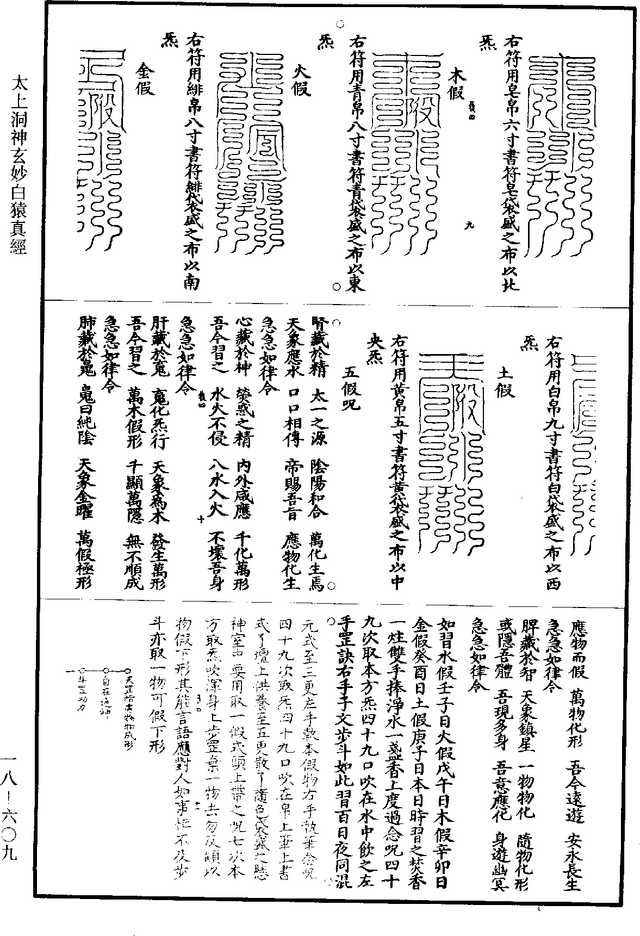 太上洞神玄妙白猿真經
右符用皂帛六寸書符皂袋盛之布以北
炁
木假
右符用青帛八寸書符青袋盛之布以東
炁
火假
右符用緋帛八寸書符緋袋盛之布以南
炁
金假
右符用白帛九寸書符白袋盛之布以西
炁
土假
右符用黃帛五寸書符黃袋盛之布以中
央炁
五假呪
腎藏於精 太一之源 陰陽和合 萬化生焉
天象應水 口口相傳 帝賜吾旨 應物化生
急急如律令
心藏於神 熒惑之精 內外咸應 千化萬形
吾今習之 水火不侵 八水入火 不壞吾身
急急如律令
肝藏於䰟 䰟化炁行 天象為木 發生萬形
吾今習之 萬木假形 千顯萬隱 無不順成
急急如律令
肺藏於䰟 䰟曰純陰 天象金曜 萬假極形
應物而假 萬物化形 吾今遠遊 安永長生
急急如律令
脾藏於智 天象鎮星 一物物化 隨物化形
或隱吾體 吾現多身 吾意應化 身遊幽冥
急急如律令
如習水假壬子日火假戊午日木假辛卯日
金假癸酉日土假庚子日本日時習之焚香
一炷雙手捧淨水一盞香上度過念呪四十
九次取本方炁四十九口吹在水中飲之左
手罡訣右手子文步斗如此習百日夜同混
元式至三更左手執本假物右手執筆念呪
四十九次取炁四十九口吹在帛上筆上書
式了壇上供養至五更散了隨色袋盛之懸
神室如要用取一假式頭上帶之呪七次本
方取炁吹渾身上步罡棄一物去勿反顧以
物假下形其能言語應對人如事忙不及步
斗亦取一物可假下形
天罡
自在通神
斗罡助力
一八—六〇九